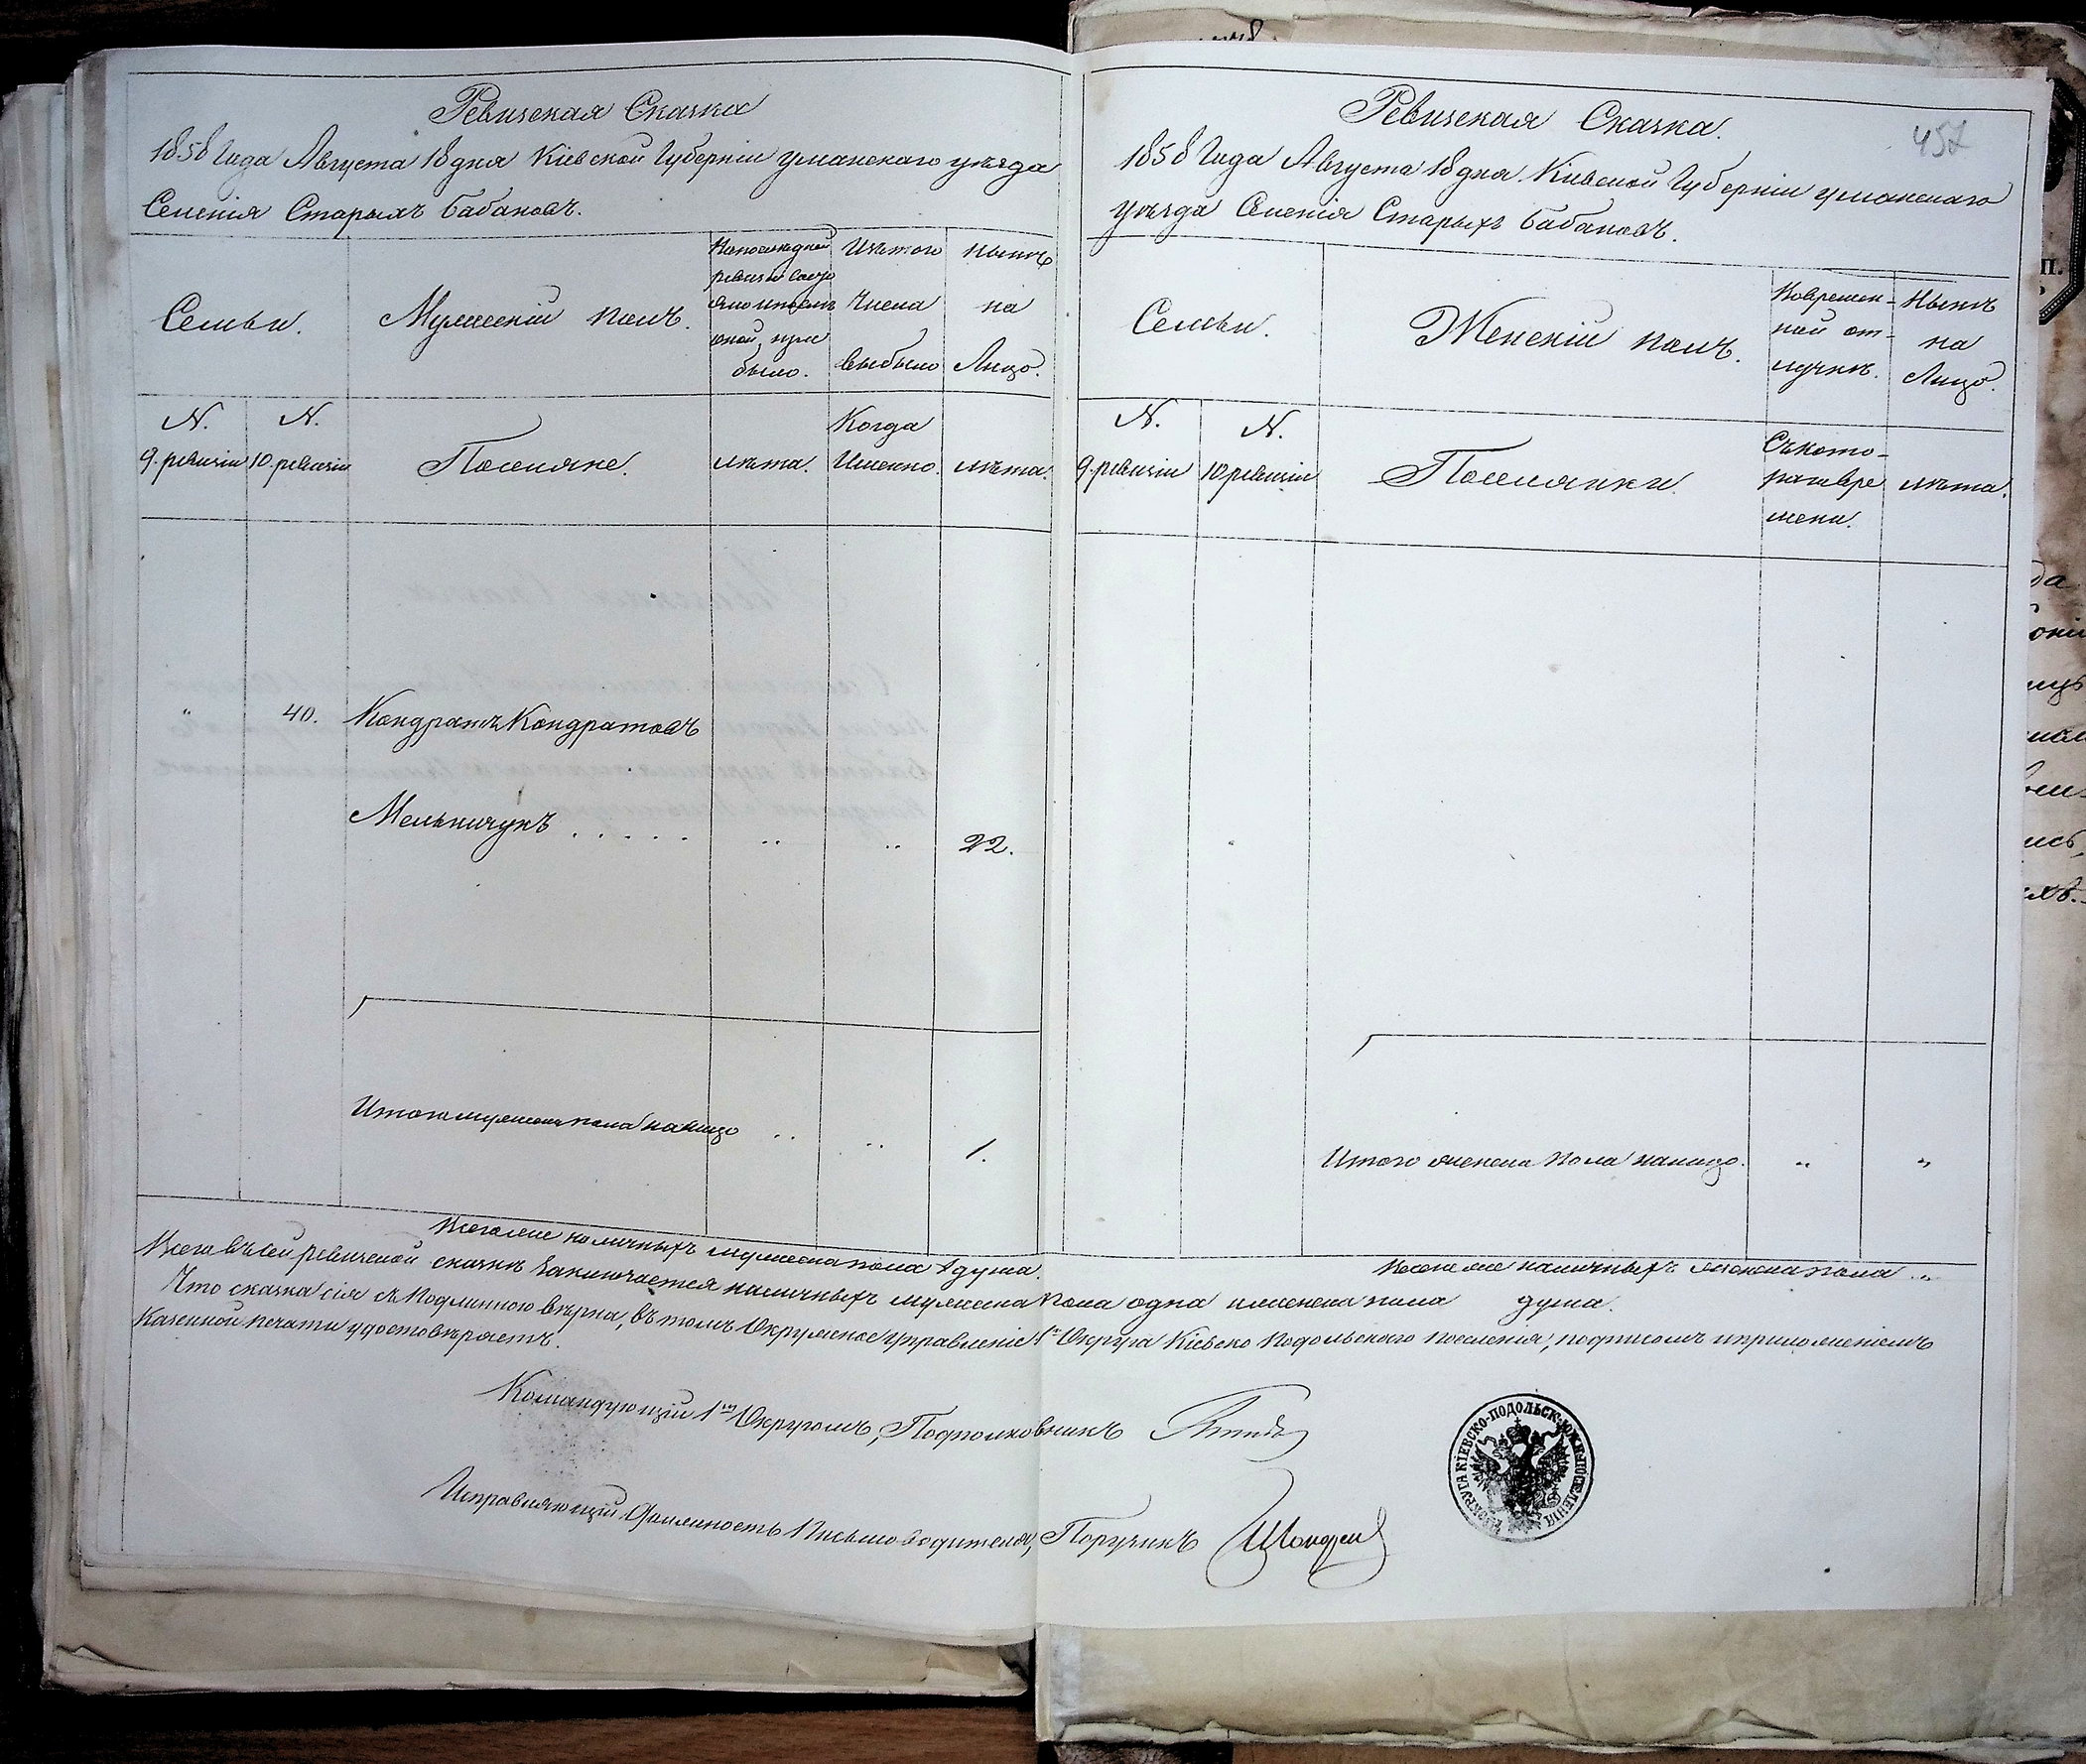 Ревизская Сказка
1858 Года Августа 18 дня Кіевской Губерніи уманскаго уѣзда
Селенія Старыхъ Бабановъ.
Семьи.
Мужескій полъ.
По последней
ревизіи состо
яло и после
оной, при
было.
Изъ того
числа
выбыло
Нынѣ
на
Лицо.
N.
9. ревизіи
N.
10. ревизіи
Поселяне.
лѣта.
Когда
Именно.
лѣта.
"
40.
Кондратъ Кондратовъ
Мельничукъ . . . . . ..
..
22.
Итого мужеска пола на лицо
..
..
1.
Всего же наличныхъ мужеска пола 1 душа.
Ревизская Сказка.
457
1858 Года Августа 18 дня Кіевской Губерніи уманскаго
уѣзда Селенія Старыхъ Бабановъ.
Семьи.
Женскій полъ.
Во времен-
ной от-
лучкѣ.
Нынѣ
на
Лицо.
N.
9. ревизіи
N.
10 ревизіи
Поселянки.
Съ кото-
раго вре
мени.
лѣта.
Итого женска пола на лицо.
"
"
Всего же наличныхъ женска пола "
Всего въ сей ревизской сказкѣ заключается наличныхъ мужеска пола одна и женска пола душа.
Что сказка сія съ подлинною вѣрна, въ томъ Окружное Управленіе 1го Округа Кіевско Подольскаго поселенія, подписомъ и приложеніемъ
Казенной печати удостовѣряетъ.
Командующій 1мъ Округомъ, Подполковникъ
Исправляющій Должность Письмоводителя, Поручикъ
ОКРУГА КІЕВСКО-ПОДОЛЬСК. ЮЖН. ПОСЕЛЕНІЯ